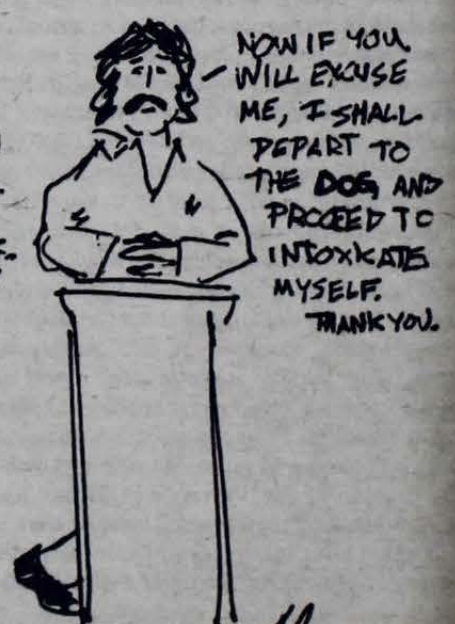 NOW IF YOU
WILL EXCUSE
ME, I SHALL
DEPART TO
THE DOG, AND
PROCEED TO
INTOXICATE
MYSELF.
THANK YOU.